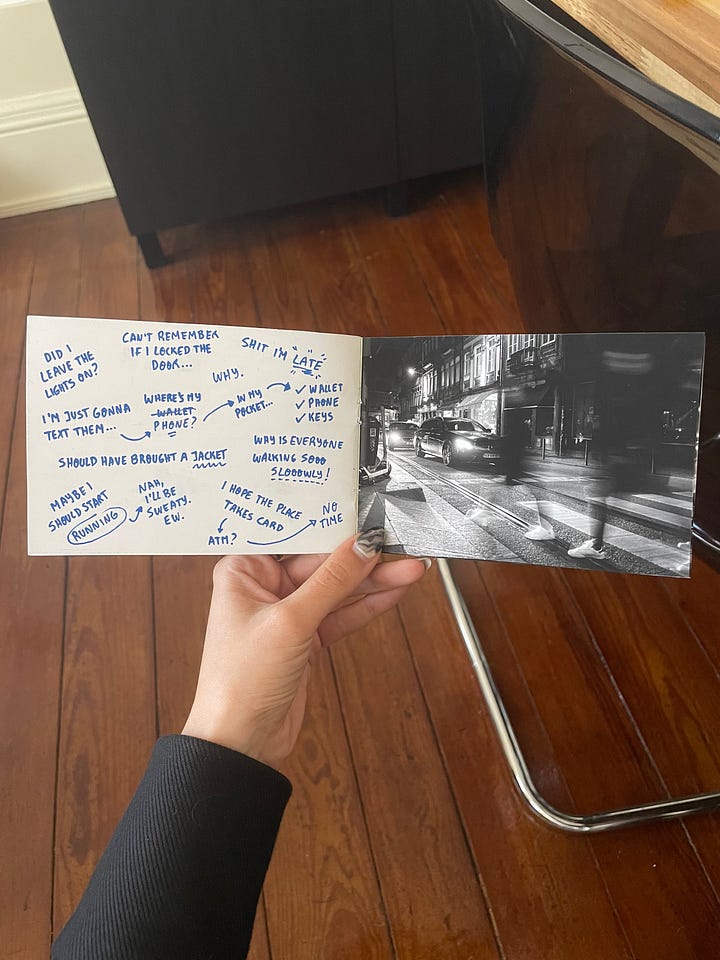 DID I
LEAVE THE
LIGHTS ON?
CAN'T REMEMBER
IF I LOCKED THE
DOOR...
SHIT I'M LATE
WHY.
I'M JUST GONNA
TEXT THEM...
WHERE'S MY
WALLET
PHONE?
IN MY
POCKET...
✓ WALLET
✓ PHONE
✓ KEYS
SHOULD HAVE BROUGHT A JACKET
WHY IS EVERYONE
WALKING SOOO
SLOOOWLY!
MAYBE I
SHOULD START
RUNNING
NAH,
I'LL BE
SWEATY.
EW.
I HOPE THE PLACE
TAKES CARD
ATM?
NO
TIME